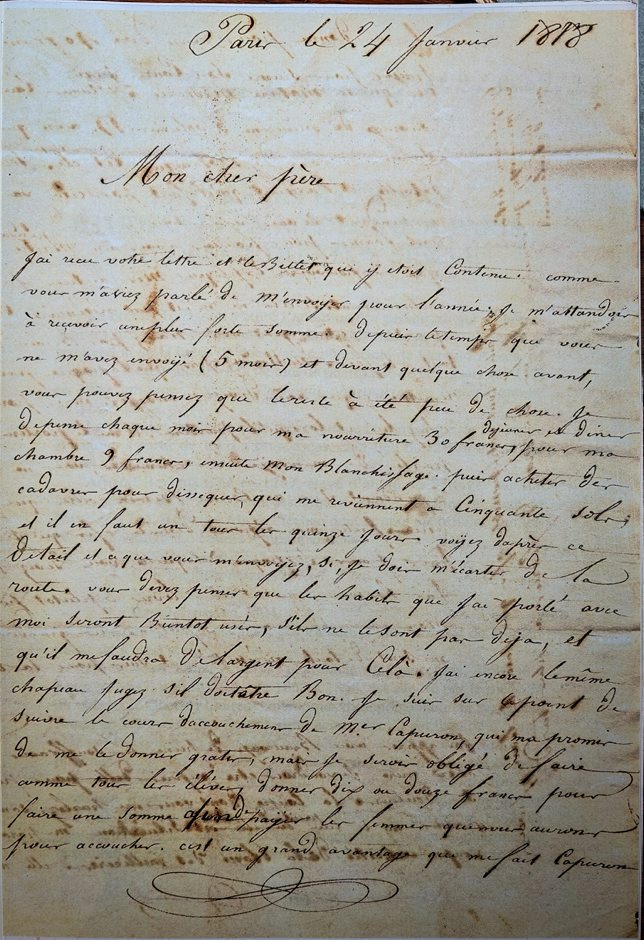 Paris le 24 Janvier 1818
Mon cher père
J'ai recu votre lettre et le Billet qui y etoit Contenu. comme
vous m'aviez parlé de m'envoyer pour l'année, je m'attandois
à recevoir une plus forte somme. depuis le temps que vous
ne m'avez envoyé (5 mois) et devant quelque chose avant,
vous pouvez pensez que le reste à été peu de chose. Je
depense chaque mois pour ma nourriture 30 francs, dejeuner et diner pour ma
chambre 9 francs, ensuite mon Blanchissage. puis acheter des
cadavres pour dissequer, qui me reviennent a Cinquante sols,
et il en faut un tous les quinze jours voyez daprès ce
detail et a que vous m'envoyez, si, je dois m'écarter de la
route. vous devez penser que les habits que j'ai porlé avec
moi seront Bientot usés, s'ils ne le sont pas deja, et
qu'il me faudra de largent pour Celà. j'ai encore le même
chapeau jugez s'il doit être Bon. Je suis sur le point de
suivre le cours daccouchement de Mer Capuron, qui ma promis
de me le donner gratis, mais je serois obligé de faire
comme tous les élèves, donner dix ou douze francs pour
faire une somme afin d payer les femmes que nous aurons
pour accoucher. c'est un grand avantage que me fait Capuron